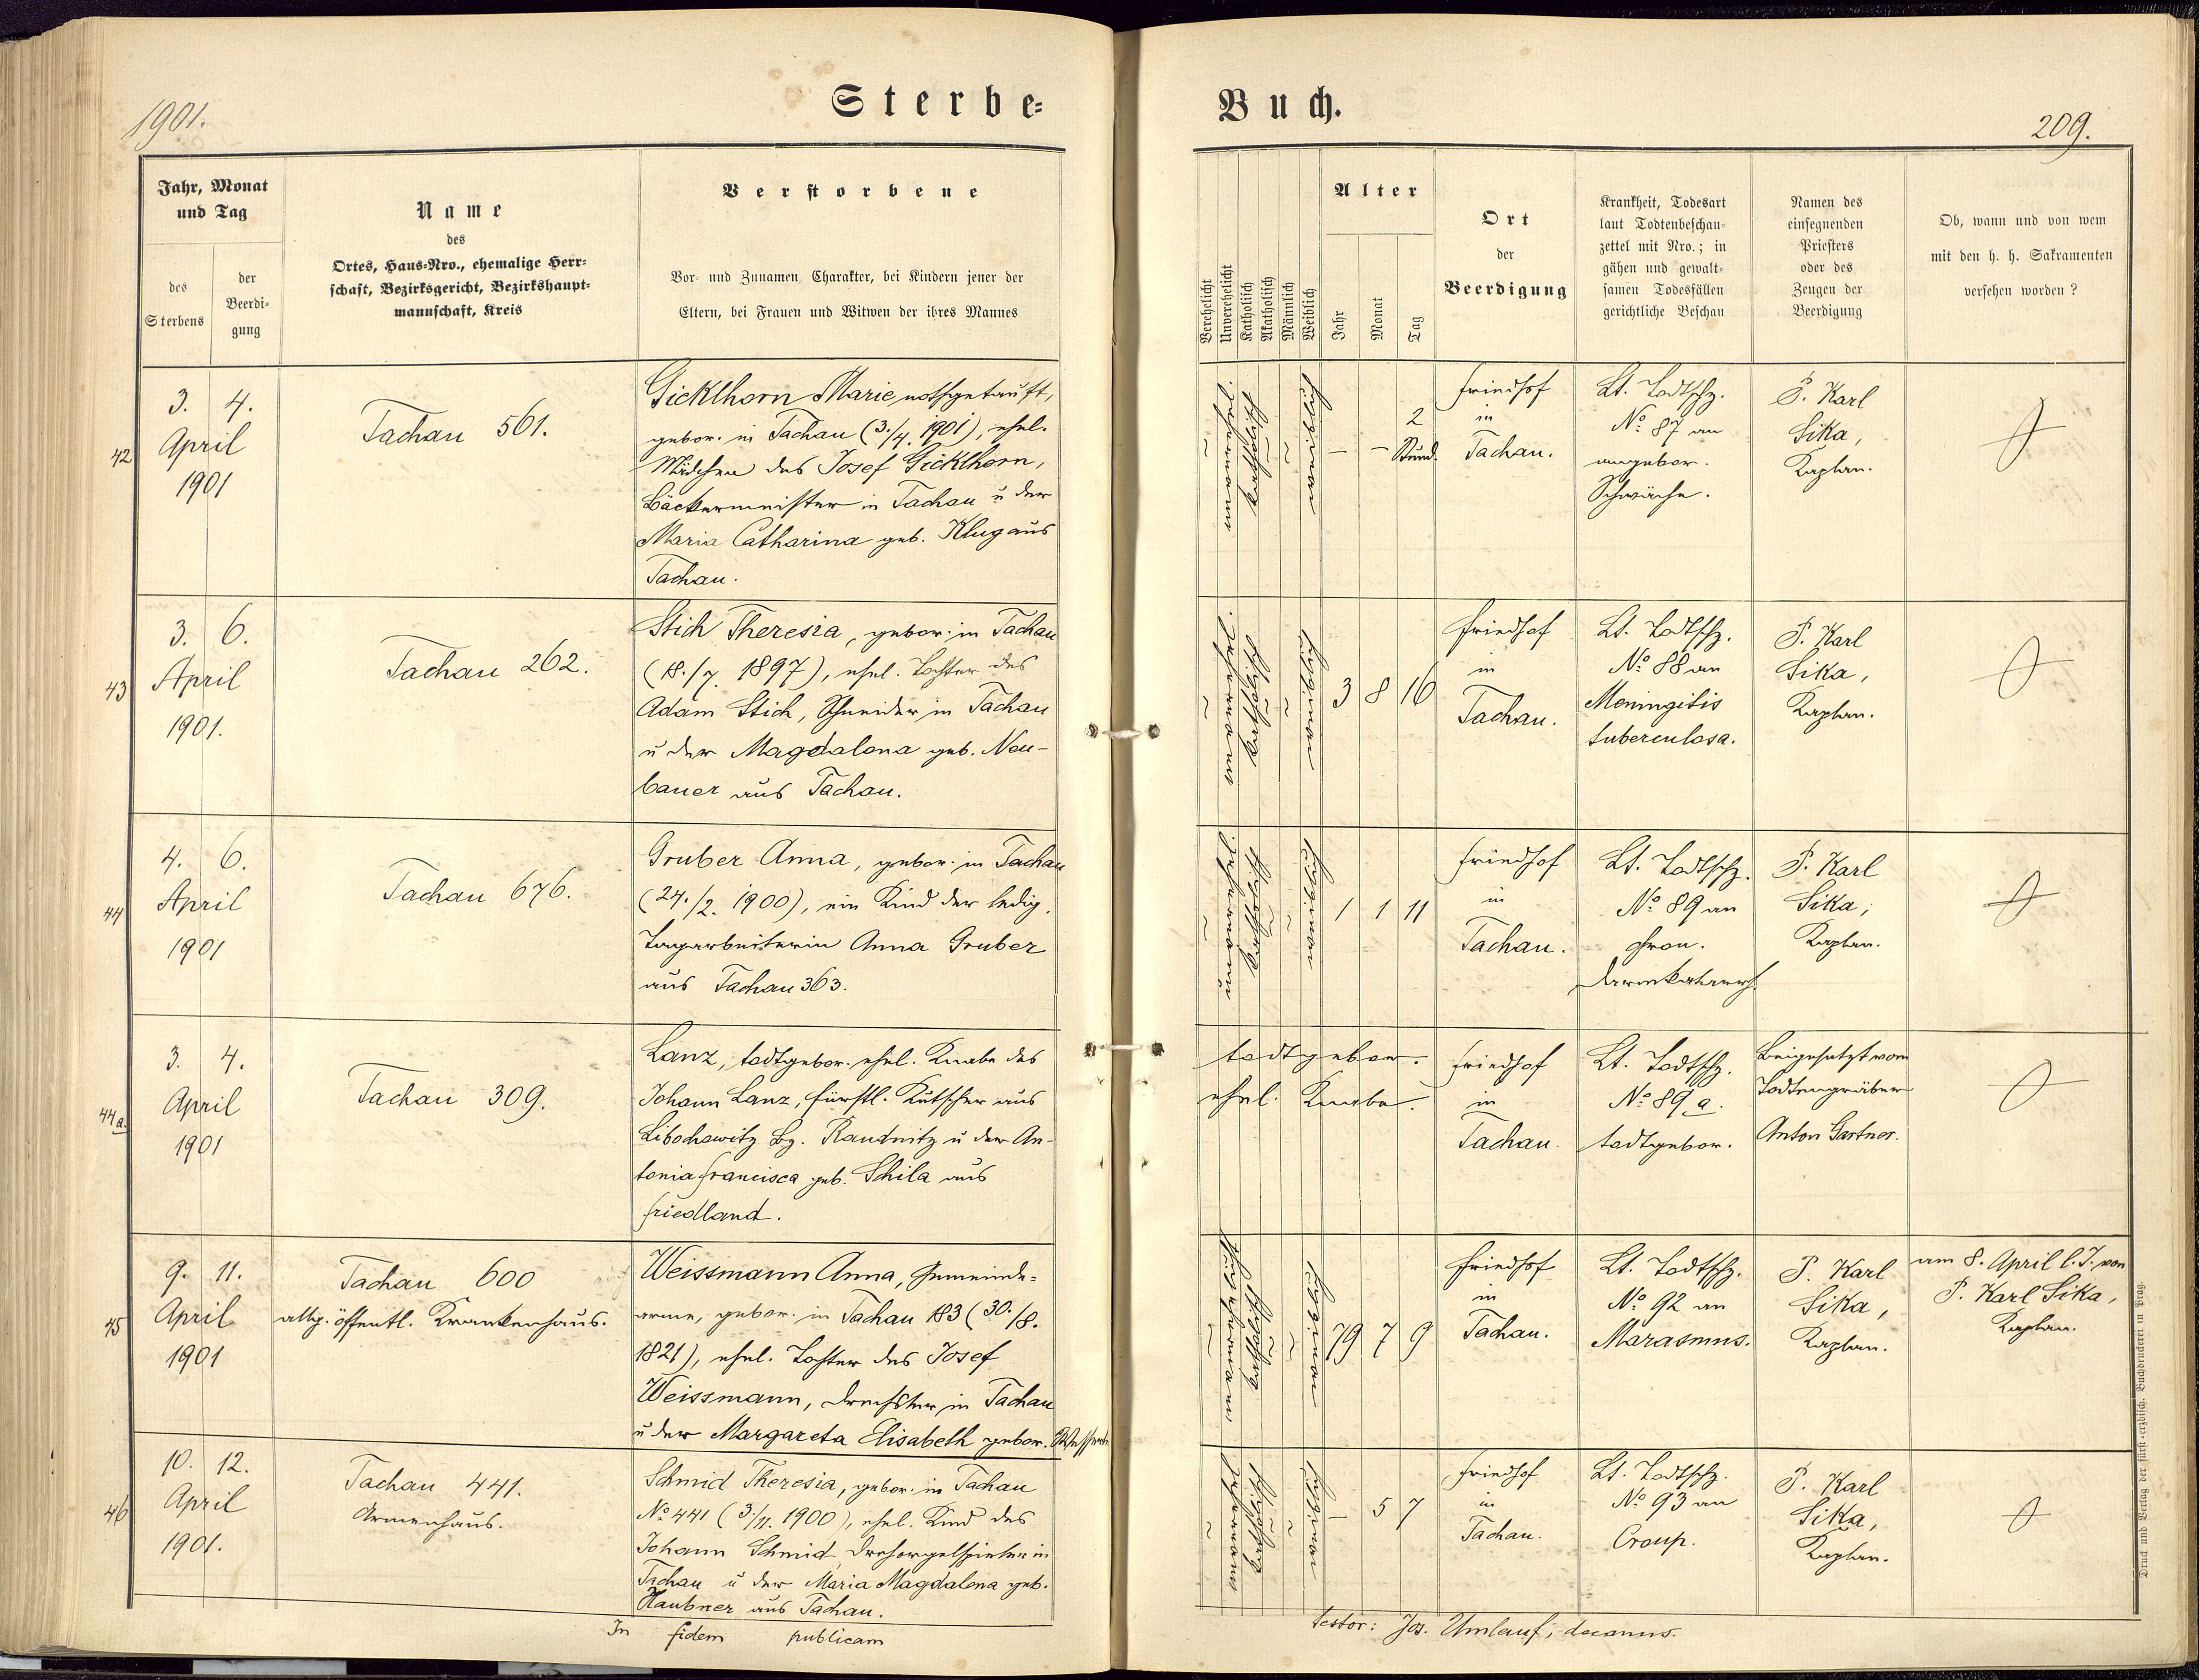 1901.
Sterbe-
Buch.
209.
Jahr, Monat
und Tag
des
Sterbens
der
Beerdi-
gung
Name
des
Ortes, Haus-Nro., ehemalige Herr-
schaft, Bezirksgericht, Bezirkshaupt-
mannschaft, Kreis
Verstorbene
Vor- und Zunamen, Charakter, bei Kindern jener der
Eltern, bei Frauen und Witwen der ihres Mannes
Verehelicht
Unverehelicht
Katholisch
Akatholisch
Männlich
Weiblich
Alter
Jahr
Monat
Tag
Ort
der
Beerdigung
Krankheit, Todesart
laut Todtenbeschau-
zettel mit Nro.; in
gähen und gewalt-
samen Todesfällen
gerichtliche Beschau
Namen des
einsegnenden
Priesters
oder des
Zeugen der
Beerdigung
Ob, wann und von wem
mit den h. h. Sakramenten
versehen worden?
42
3. 4.
April
1901
Tachau 561.
Gicklhorn Marie, nothgetauft,
gebor. in Tachau (3./4. 1901), ehel.
Mädchen des Josef Gicklhorn,
Bäckermeister in Tachau u der
Maria Catharina geb. Klug aus
Tachau.
katholisch
– – 2
Stund.
Friedhof
in
Tachau.
Lt. Todtschz.
No. 87 an
angebor.
Schwäche.
P. Karl
Sika,
Kaplan.
43
3. 6.
April
1901.
Tachau 262.
Stich Theresia, gebor. in Tachau
(18./7. 1897), ehel. Tochter des
Adam Stich, Schneider in Tachau
u der Magdalena geb. Neu-
bauer aus Tachau.
katholisch
3 8 16
Friedhof
in
Tachau.
Lt. Todtschz.
No. 88 an
Meningitis
tuberculosa.
P. Karl
Sika,
Kaplan.
44
4. 6.
April
1901
Tachau 676.
Gruber Anna, gebor. in Tachau
(24./2. 1900), ein Kind der ledig.
Tagarbeiterin Anna Gruber
aus Tachau 363.
katholisch
1 1 11
Friedhof
in
Tachau.
Lt. Todtschz.
No. 89 an
chron.
Darmkatarrh.
P. Karl
Sika,
Kaplan.
44a.
3. 4.
April
1901
Tachau 309.
Lanz, todtgebor. ehel. Knabe des
Johann Lanz, fürstl. Kutscher aus
Libochowitz Bz. Raudnitz u der An-
tonia Francisca geb. Schila aus
Friedland.
todtgebor.
ehel. Knabe.
Friedhof
in
Tachau.
Lt. Todtschz.
No. 89 a.
todtgebor.
Beigesetzt vom
Todtengräber
Anton Gartner.
45
9. 11.
April
1901
Tachau 600
allg. öffentl. Krankenhaus.
Weissmann Anna, Gemeinde-
arme, gebor. in Tachau 183 (30./8.
1821), ehel. Tochter des Josef
Weissmann, Drechsler in Tachau
u der Margareta Elisabeth gebor.
katholisch
79 7 9
Friedhof
in
Tachau.
Lt. Todtschz.
No. 92 an
Marasmus.
P. Karl
Sika,
Kaplan.
am 8. April l. J. von
P. Karl Sika,
Kaplan.
46
10. 12.
April
1901.
Tachau 441.
Armenhaus.
Schmid Theresia, gebor. in Tachau
No. 441 (3./11. 1900), ehel. Kind des
Johann Schmid, Drehorgelspieler in
Tachau u der Maria Magdalena geb.
Haubner aus Tachau.
katholisch
– 5 7
Friedhof
in
Tachau.
Lt. Todtschz.
No. 93 an
Croup.
P. Karl
Sika,
Kaplan.
In fidem publicam
testor: Jos. Umlauf, decanus.
Druck und Verlag der fürst-erzbisch. Buchdruckerei in Prag.